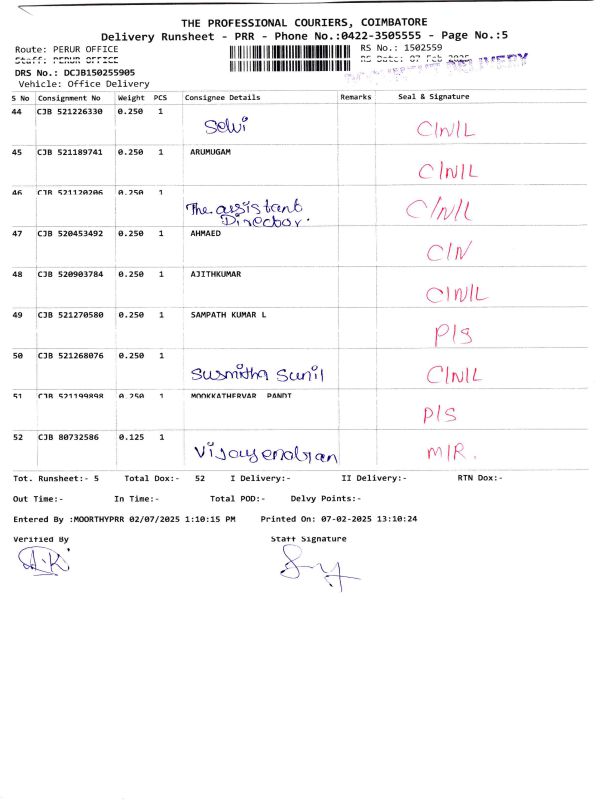 THE PROFESSIONAL COURIERS, COIMBATORE
Delivery Runsheet - PRR - Phone No.:0422-3505555 - Page No.:5
Route: PERUR OFFICE RS No.: 1502559
Staff: PERUR OFFICE RS Date: 07 Feb 2025
DRS No.: DCJB150255905 DELIVERY
Vehicle: Office Delivery
S No Consignment No Weight PCS Consignee Details Remarks Seal & Signature
44 CJB 521226330 0.250 1 Selvi C/N/L
45 CJB 521189741 0.250 1 ARUMUGAM C/N/L
46 CJB 521120206 0.250 1 The assistant Director. C/N/L
47 CJB 520453492 0.250 1 AHMAED C/N
48 CJB 520903784 0.250 1 AJITHKUMAR C/N/L
49 CJB 521270580 0.250 1 SAMPATH KUMAR L P/S
50 CJB 521268076 0.250 1 Susmitha Sunil C/N/L
51 CJB 521199898 0.250 1 MOOKKATHERVAR PANDI P/S
52 CJB 80732586 0.125 1 M/R.
Tot. Runsheet:- 5 Total Dox:- 52 I Delivery:- II Delivery:- RTN Dox:-
Out Time:- In Time:- Total POD:- Delvy Points:-
Entered By :MOORTHYPRR 02/07/2025 1:10:15 PM Printed On: 07-02-2025 13:10:24
Verified By Staff Signature